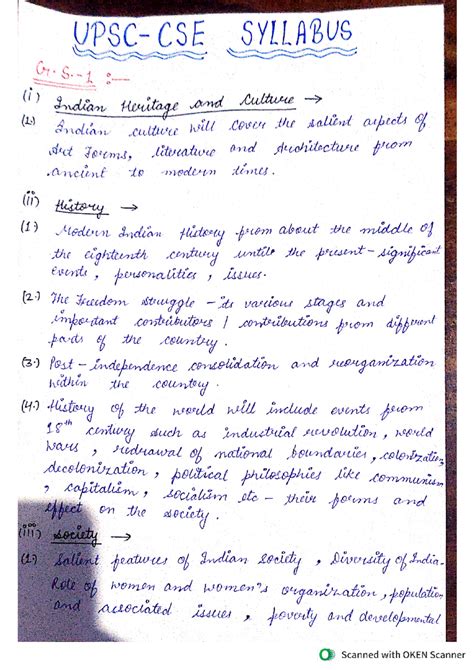 UPSC-CSE SYLLABUS
G.S.-1 :—
(i) Indian Heritage and Culture →
(1.) Indian culture will cover the salient aspects of
Art Forms, literature and Architecture from
ancient to modern times.
(ii) History →
(1) Modern Indian History from about the middle of
the eighteenth century until the present - significant
events, personalities, issues.
(2.) The Freedom struggle - its various stages and
important contributors / contributions from different
parts of the country.
(3.) Post - independence consolidation and reorganization
within the country.
(4.) History of the world will include events from
18th century such as industrial revolution, world
wars, redrawal of national boundaries, colonization,
decolonization, political philosophies like communism
, capitalism, socialism etc - their forms and
effect on the society.
(iii) Society →
(1.) Salient features of Indian Society, Diversity of India-
Role of women and women's organization, population
and associated issues, poverty and developmental
Scanned with OKEN Scanner